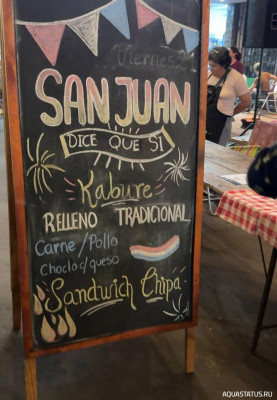 Viernes
SAN JUAN
DICE QUE SI
Kabure
RELLENO TRADICIONAL
Carne/Pollo
Choclo c/queso
Sandwich Chipa
AQUASTATUS.RU